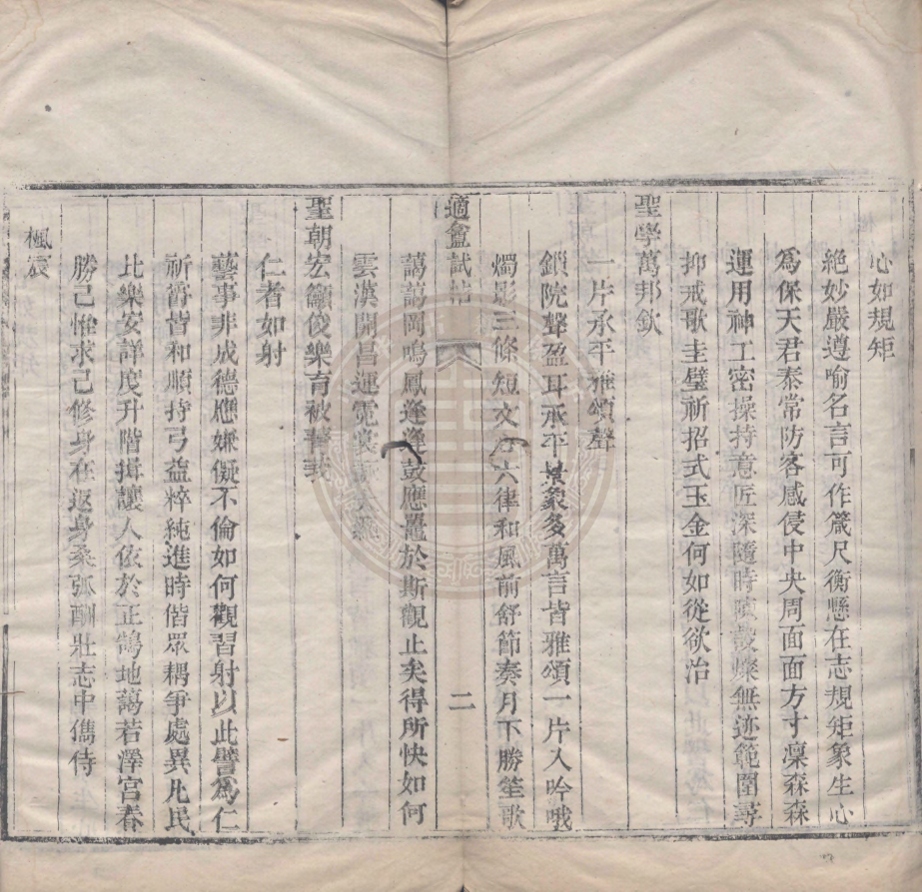 心如規矩
絶妙嚴遵喻名言可作箴尺衡懸在志規矩象生心
爲保天君泰常防客感侵中央周面面方寸凜森森
運用神工密操持意匠深隨時 無迹範圍尋
抑戒歌圭璧祈招式玉金何如從欲治
聖學萬邦欽
一片承平雅頌聲
鎖院聲盈耳承平景象多萬言皆雅頌一片入吟哦
燭影三條短文 六律和風前舒節奏月下勝笙歌
適盦試帖
二
藹藹岡鳴鳳逢逢鼓應鼉於斯觀止矣得所快如何
雲漢開昌運霓裳
聖朝宏籲俊樂育被菁莪
仁者如射
藝事非成德應嫌儗不倫如何觀習射以此譬爲仁
祈爵皆和順持弓益粹純進時偕眾耦爭處異凡民
比樂安詳度升階揖讓人依於正鵠地藹若澤宮春
勝己惟求己修身在返身桑弧酬壯志中儁侍
楓宸